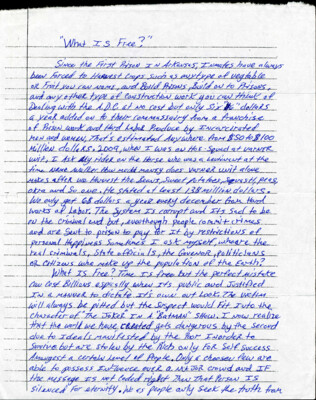 "What Is Free?"
Since the First Prison In Arkansas, Inmates have always
been forced to Harvest Crops such as any type of vegetable
or fruit you can name, and Build Prisons, Build on to Prisons,
and any other type of construction work you can think of
Dealing with the A.D.C. at no cost but only six dollars
a year added on to their commissary from a franchise
of Prison work and Hard Labor Produce by Incarcerated
men and women, That's estimated Anywhere from $50 to $100
Million dollars. 2009, when I was on Hoe-Squad at Varner
unit, I ask My rider on the Horse who was a Lieutenant at the
time Name Waller how much money does Varner unit alone
makes after we Harvest the Sweet Potatoes, Peas,
okra and So one. He stated at least 138 million dollars.
We only get 68 dollars a year every december from Hard
works of Labor. The System is corrupt and It's Sad to be
on the criminal end but, eventhough people commit crimes
and are Sent to prison to pay for It by restrictions of
personal Happiness Sometimes I ask myself, where are the
real criminals, State officials, the Governor, politicians
or Citizens who make up the population of the Earth?
What Is Free? Time Is free but the perfect mistake
can cost Billions espically when It's public and Justified
In a manner to dictate It's own out Look. The Victim
will always be pitied but the Suspect would Fit Into the
character of The Joker In A "Batman" Show. I now realize
that the world we have, created gets dangerous by the second
due to Ideals manifested by the Poor Inorder to
Survive but are stolen by the Rich only for Self Success
Amongest a certain Level of People. Only a choosen few are
able to possess Influence over a major crowd and IF
the message Is not Coded right Then That Person IS
Silenced for eternity. We as people only Seek the truth from